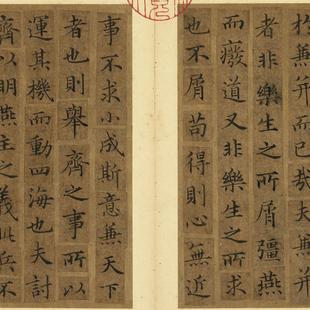 扵兼并而已哉夫兼并
者非樂生之所屑彊燕
而癈道又非樂生之所求
也不屑苟得則心無近
事不求小成斯意兼天下
者也則舉齊之事所以
運其機而動四海也夫討
齊以明燕主之義此兵不